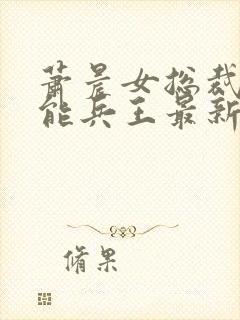 萧晨女总裁
能兵王最新
脩果